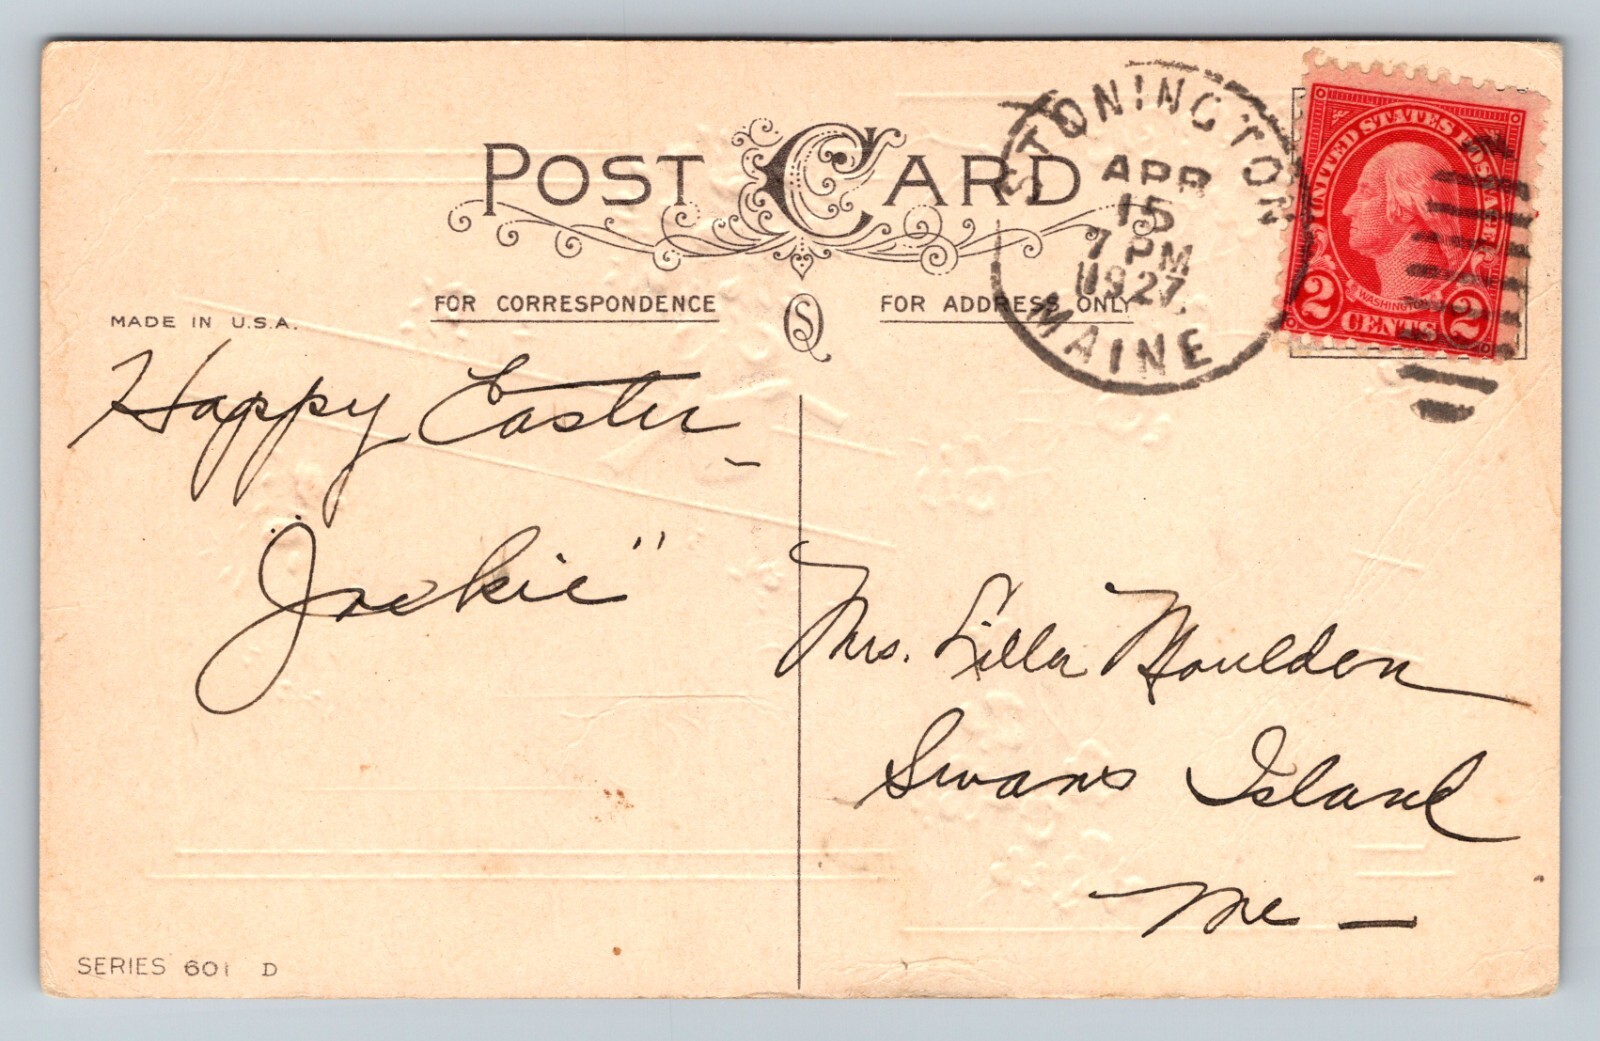 POST CARD
FOR CORRESPONDENCE
FOR ADDRESS ONLY
MADE IN U.S.A.
Happy Easter –
"Jackie"
SERIES 601 D
STONINGTON
APR
15
7 PM
1927
MAINE
UNITED STATES POSTAGE
WASHINGTON
2 CENTS 2
Mrs. Lilla Moulden
Swans Island
Me –